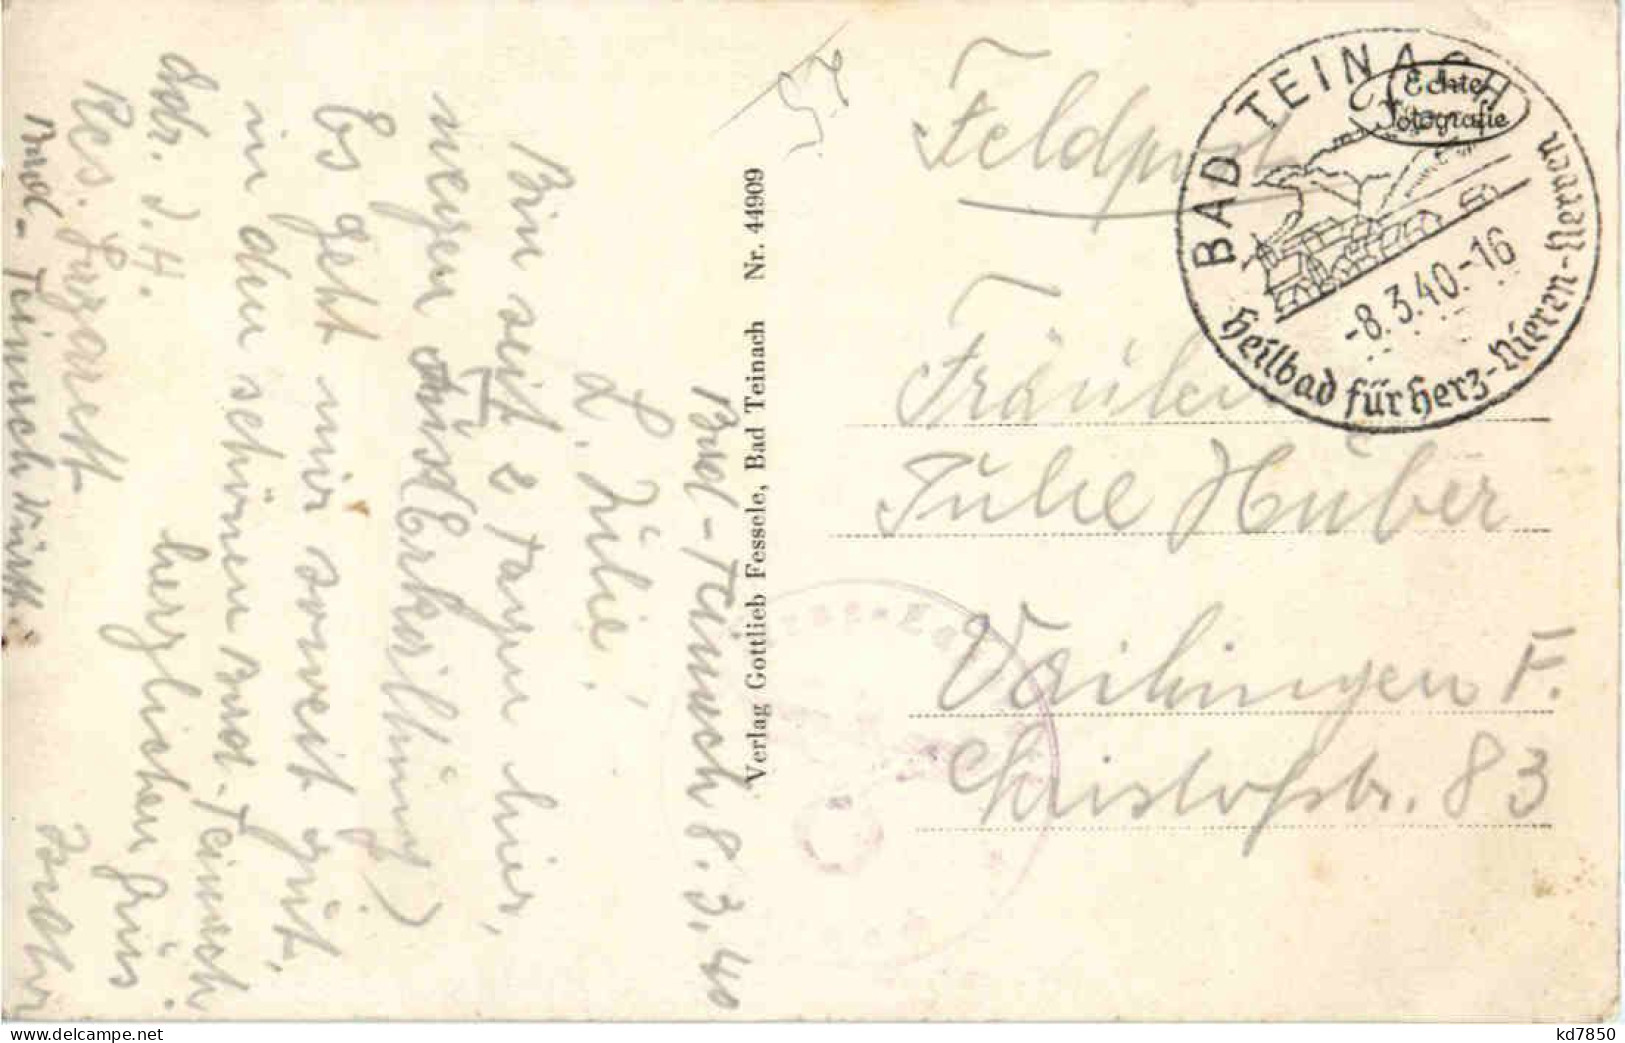 Bad-Teinach 8.3.40
L. Julie!
Bin seit 2 Tagen hier,
wegen Erkältung)
Es geht mir soweit gut.
in dem schönen Bad-Teinach
herzlichen Grus
Res. Lazarett
Bad-Teinach Württ.
Verlag Gottlieb Fessele, Bad Teinach Nr. 44909
Feldpost
Fräulein
Julie Huber
Vaihingen F.
Christofstr. 83
BAD TEINACH
Echte
Fotografie
-8.3.40.-16
Heilbad für Herz-Nieren-Nerven
kd7850